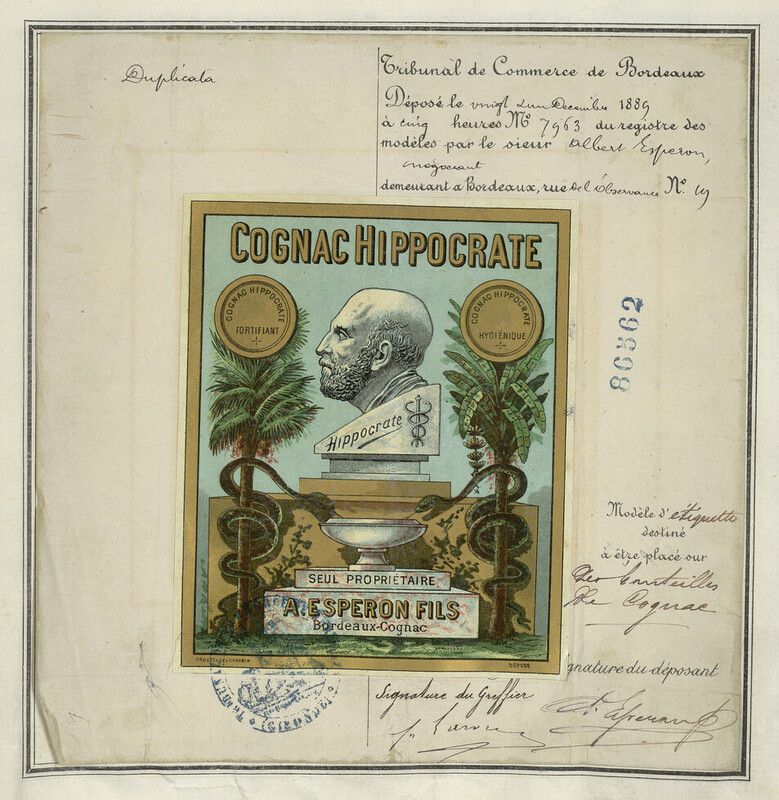 Duplicata
Tribunal de Commerce de Bordeaux
Déposé le vingt un Décembre 1889
à cinq heures No 7963 du registre des
modèles par le sieur Albert Esperon,
négociant
demeurant a Bordeaux, rue de l'Observance No. 19
COGNAC HIPPOCRATE
COGNAC HIPPOCRATE
FORTIFIANT
COGNAC HIPPOCRATE
HYGIÉNIQUE
Hippocrate
80562
SEUL PROPRIÉTAIRE
A. ESPERON FILS
Bordeaux-Cognac
DÉPOSÉ
Modèle d'étiquette
destiné
à être placé sur
des bouteilles
de Cognac
Signature du Greffier
gnature du déposant
A. Esperon
(GIRONDE)